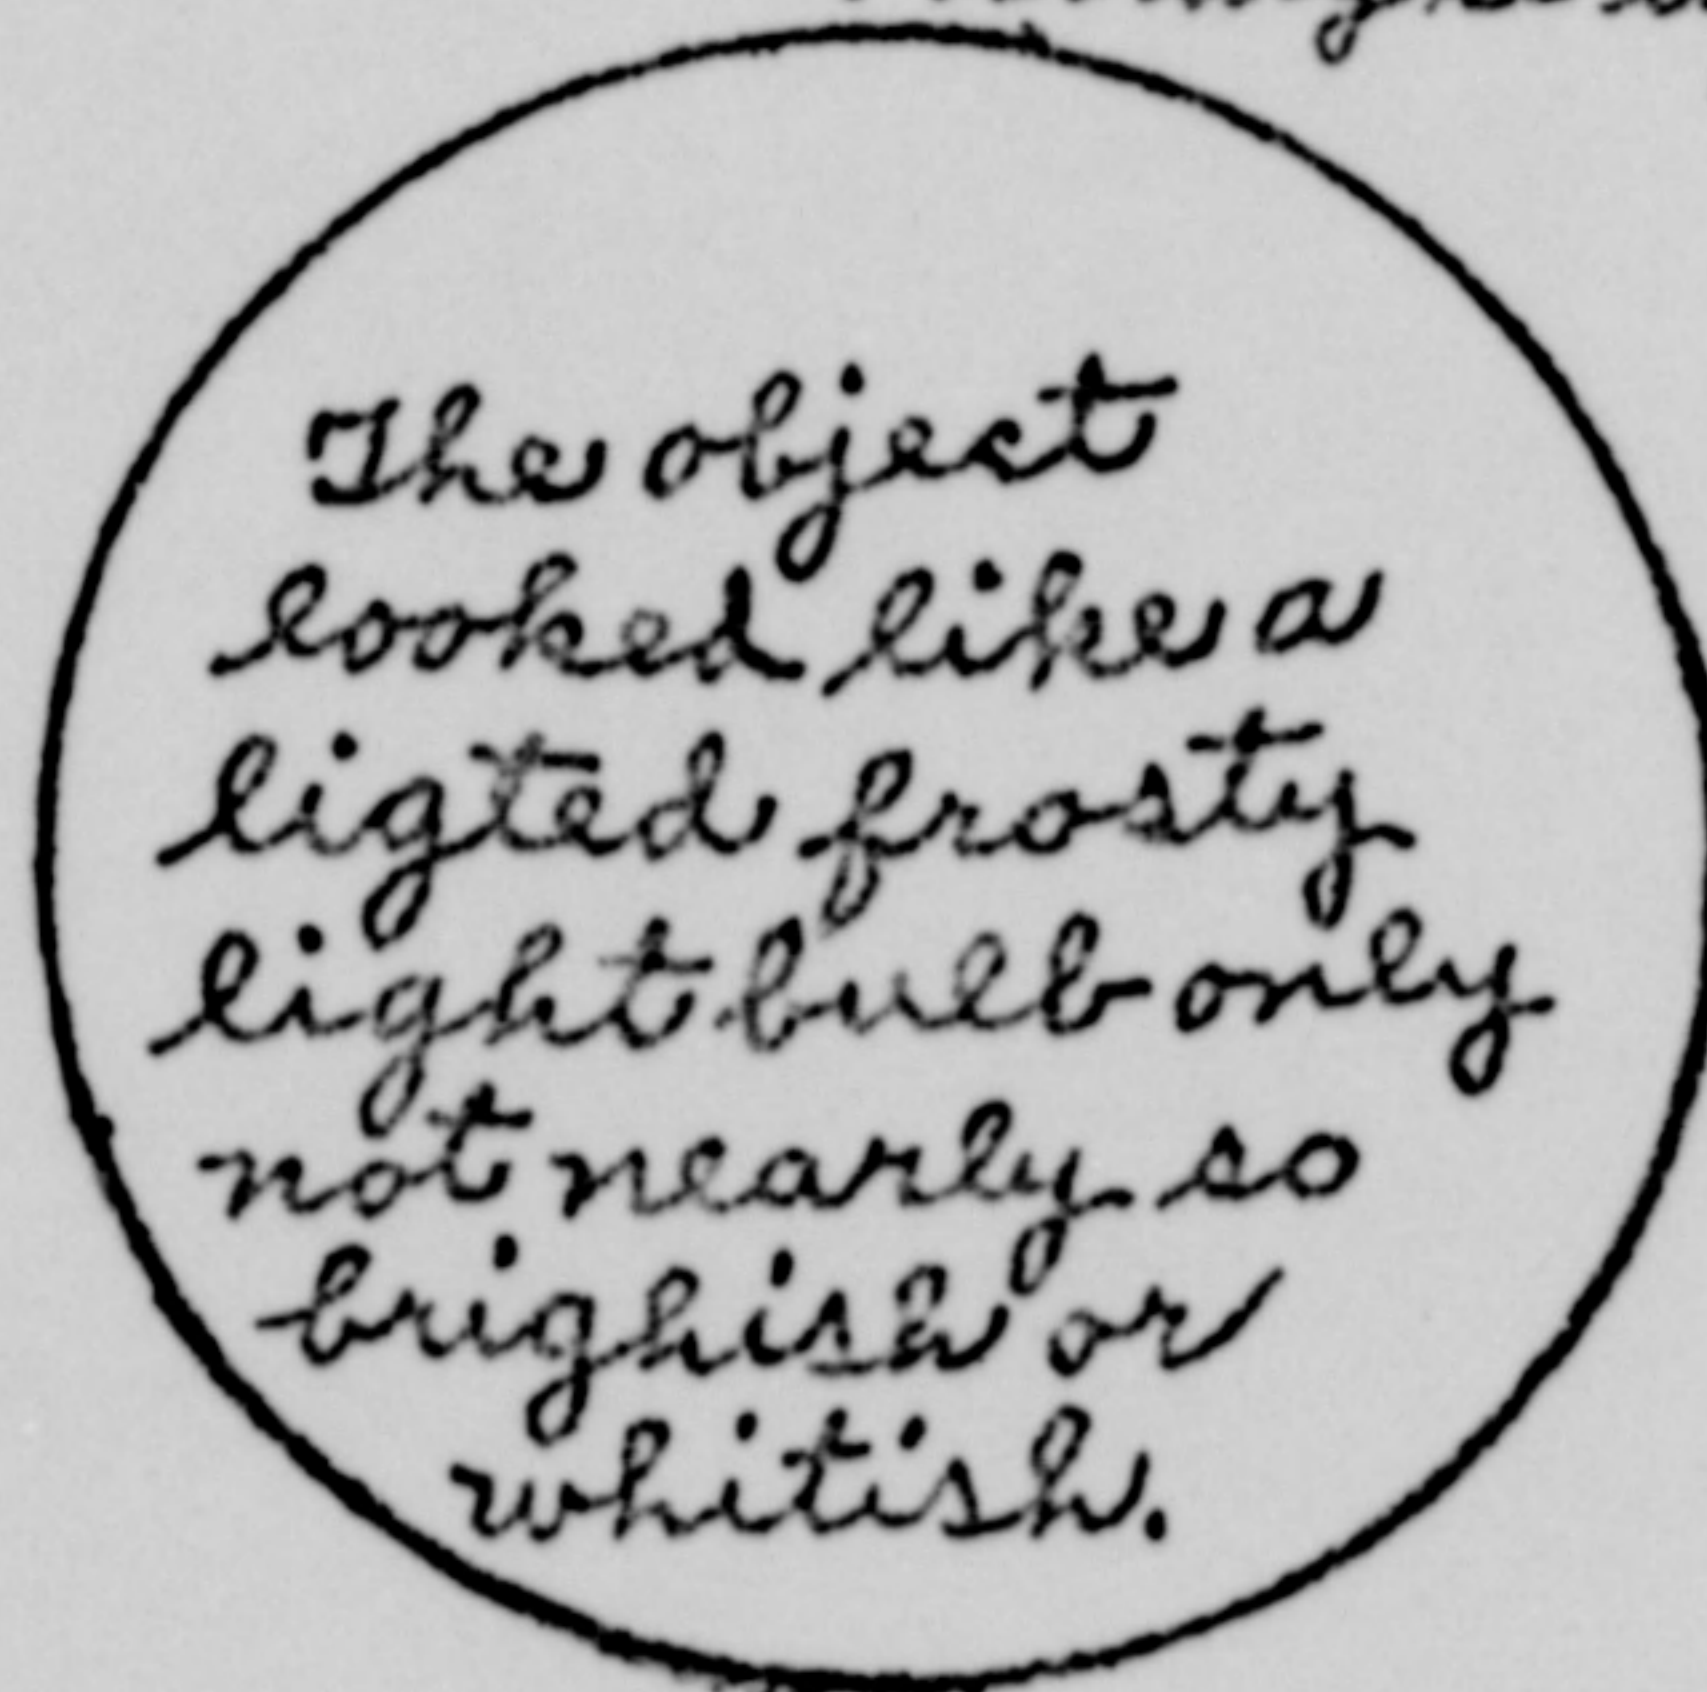 The object
looked like a
ligted frosty
light bulb only
not nearly so
brighish or
whitish.